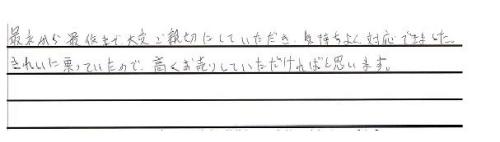 最初から最後まで大変ご親切にしていただき、気持ちよく対応できました。
きれいに乗っていたので、高くお売りしていただければと思います。